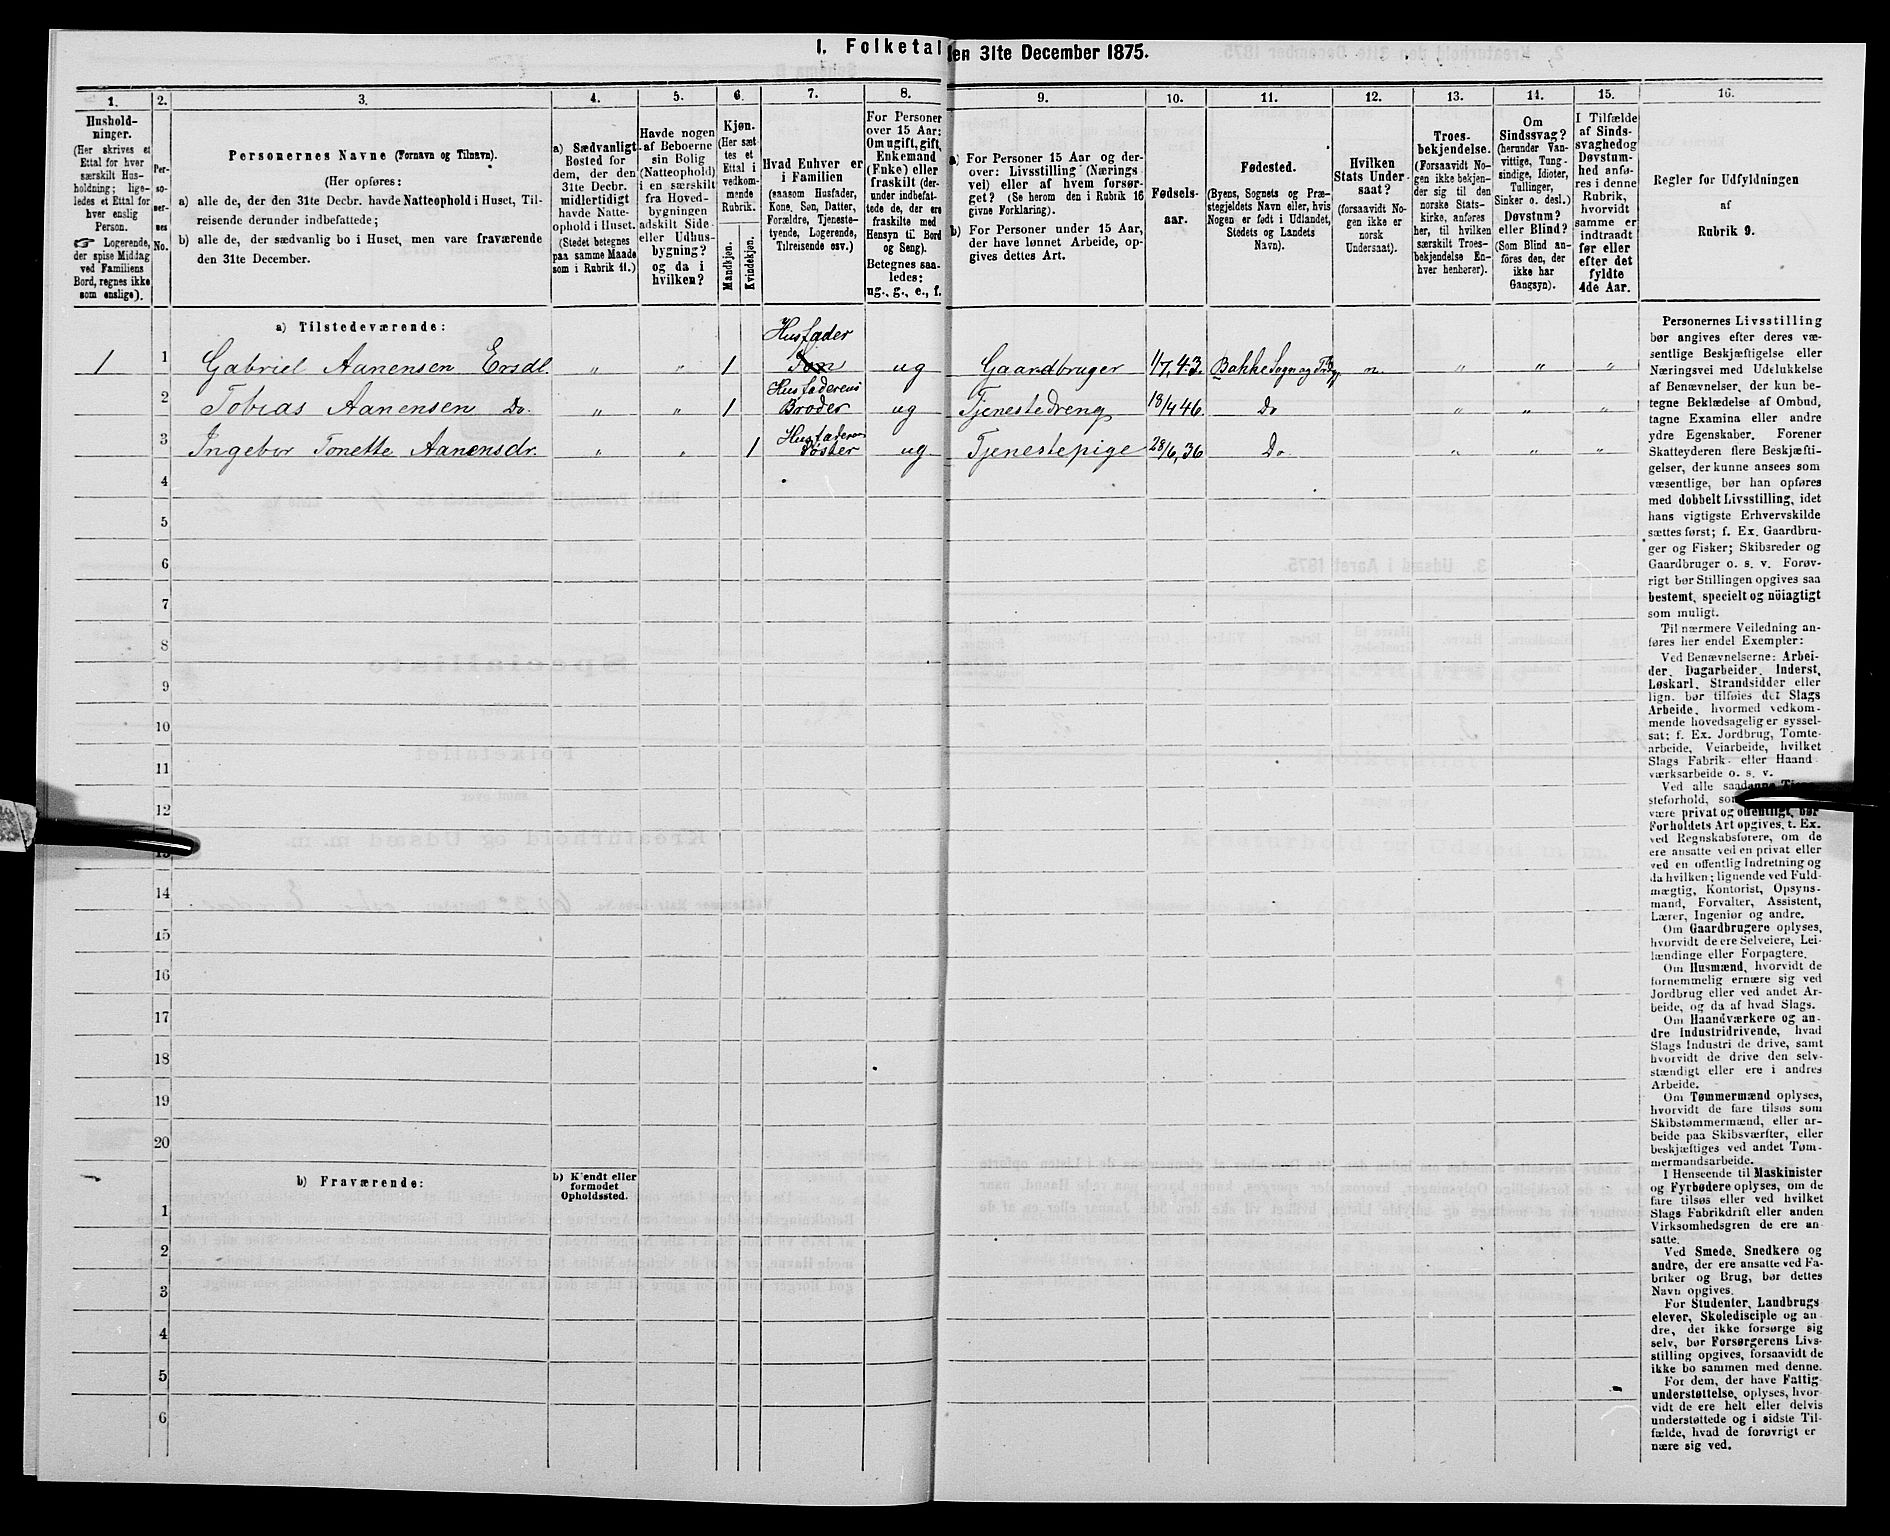 I. Folketal den 31te December 1875.
1. 2. 3. 4. 5. 6. 7. 8. 9. 10. 11. 12. 13. 14. 15. 16.
Hushold-
ninger.
(Her skrives et
Ettal for hver
særskilt Hus-
holdning; lige-
ledes et Ettal for
hver enslig
Person.
☞ Logerende,
der spise Middag
ved Familiens
Bord, regnes ikke
som enslige).
Per-
so-
ner-
nes
No.
Personernes Navne (Fornavn og Tilnavn).
(Her opføres:
a) alle de, der den 31te Decbr. havde Natteophold i Huset, Til-
reisende derunder indbefattede;
b) alle de, der sædvanlig bo i Huset, men vare fraværende
den 31te December.
a) Sædvanligt
Bosted for
dem, der den
31te Decbr.
midlertidigt
havde Natte-
ophold i Huset.
(Stedet betegnes
paa samme Maade
som i Rubrik 11.)
Havde nogen
af Beboerne
sin Bolig
(Natteophold)
i en særskilt
fra Hoved-
bygningen
adskilt Side-
eller Udhus-
bygning?
og da i
hvilken?
Kjøn.
(Her sæt
tes et
Ettal i
vedkom-
mende
Rubrik.
Mandkjøn.
Kvindekjøn.
Hvad Enhver er
i Familien
(saasom Husfader,
Kone, Søn, Datter,
Forældre, Tjeneste-
tyende, Logerende,
Tilreisende osv.)
For Personer
over 15 Aar:
Om ugift, gift,
Enkemand
(Enke) eller
fraskilt (der-
under indbefat-
tede de, der ere
fraskilte med
Hensyn til Bord
og Seng).
Betegnes saa-
ledes:
ug., g., e., f.
a) For Personer 15 Aar og der-
over: Livsstilling (Nærings
vei) eller af hvem forsør-
get? (Se herom den i Rubrik 16
givne Forklaring).
b) For Personer under 15 Aar,
der have lønnet Arbeide, op-
gives dettes Art.
Fødsels-
aar.
Fødested.
(Byens, Sognets og Præ-
stegjeldets Navn eller, hvis
Nogen er født i Udlandet,
Stedets og Landets
Navn).
Hvilken
Stats Under-
saat?
(forsaavidt No-
gen ikke er
norsk
Undersaat).
Troes-
bekjendelse.
(Forsaavidt No-
gen ikke bekjen-
der sig til den
norske Stats-
kirke, anføres
her, til hvilken
særskilt Troes-
bekjendelse En-
hver henhører).
Om
Sindssvag?
(herunder Van-
vittige, Tung-
sindige, Idioter,
Tullinger,
Sinker o. desl.)
Døvstum?
eller Blind?
(Som Blind an-
føres den, der
ikke har
Gangsyn).
I Tilfælde
af Sinds-
svaghed og
Døvstum-
hed anfø-
res i denne
Rubrik,
hvorvidt
samme er
indtraadt
før eller
efter det
fyldte
4de Aar.
Regler for Udfyldningen
af
Rubrik 9.
a) Tilstedeværende:
1 1 Gabriel Aanensen Ersdl „ „ 1 Husfader Søn ug Gaardbruger 1/7, 43. Bakke Sogn og n. „ „ „
2 Tobias Aanensen Do. „ „ 1 Husfaderens Broder ug Tjenestedreng 18/4 46. Do „ „ „
3 Ingebor Tonette Aanensdr. „ „ 1 Husfaderens Søster ug Tjenestepige 28/6, 36 Do. „ „ „
4
5
6
7
8
9
10
11
12
13
14
15
16
17
18
19
20
b) Fraværende:
b) Kjendt eller
formodet
Opholdssted.
1
2
3
4
5
6
Personernes Livsstilling
bør angives efter deres væ-
sentlige Beskjæftigelse eller
Næringsvei med Udelukkelse
af Benævnelser, der kun be-
tegne Beklædelse af Ombud,
tagne Examina eller andre
ydre Egenskaber. Forener
Skatteyderen flere Beskjæfti-
gelser, der kunne ansees som
væsentlige, bør han opføres
med dobbelt Livsstilling, idet
hans vigtigste Erhvervskilde
sættes først; f. Ex. Gaardbru-
ger og Fisker; Skibsreder og
Gaardbruger o. s. v. Forøv-
rigt bør Stillingen opgives saa
bestemt, specielt og nöiagtigt
som muligt.
Til nærmere Veiledning an-
føres her endel Exempler:
Ved Benævnelserne: Arbei-
der, Dagarbeider, Inderst,
Løskarl, Strandsidder eller
lign. bør tilføies det Slags
Arbeide, hvormed vedkom-
mende hovedsagelig er syssel-
sat; f. Ex. Jordbrug, Tomte-
arbeide, Veiarbeide, hvilket
Slags Fabrik- eller Haand
værksarbeide o. s. v.
Ved alle saadanne Tjene-
steforhold, som
være privat og offentligt, bør
Forholdets Art opgives, t. Ex.
ved Regnskabsførere, om de
ere ansatte ved en privat eller
ved en offentlig Indretning og
da hvilken; lignende ved Fuld-
mægtig, Kontorist, Opsyns-
mand, Forvalter, Assistent,
Lærer, Ingeniør og andre.
Om Gaardbrugere oplyses,
hvorvidt de ere Selveiere, Lei-
lændinge eller Forpagtere.
Om Husmænd, hvorvidt de
fornemmelig ernære sig ved
Jordbrug eller ved andet Ar-
beide, og da af hvad Slags.
Om Haandværkere og an-
dre Industridrivende, hvad
Slags Industri de drive, samt
hvorvidt de drive den selv-
stændigt eller ere i andres
Arbeide.
Om Tømmermænd oplyses,
hvorvidt de fare tilsøs som
Skibstømmermænd, eller ar-
beide paa Skibsværfter, eller
beskjæftiges ved andet Tøm-
mermandsarbeide.
I Henseende til Maskinister
og Fyrbødere oplyses, om de
fare tilsøs eller ved hvilket
Slags Fabrikdrift eller anden
Virksomhedsgren de ere an-
satte.
Ved Smede, Snedkere og
andre, der ere ansatte ved Fa-
briker og Brug, bør dettes
Navn opgives.
For Studenter, Landbrugs
elever, Skoledisciple og an-
dre, der ikke forsørge sig
selv, bør Forsørgerens Livs-
stilling opgives, forsaavidt de
ikke bo sammen med denne.
For dem, der have Fattig
understøttelse, oplyses, hvor-
vidt de ere helt eller delvis
understøttede og i sidste Til-
fælde, hvad de forøvrigt er
nære sig ved.